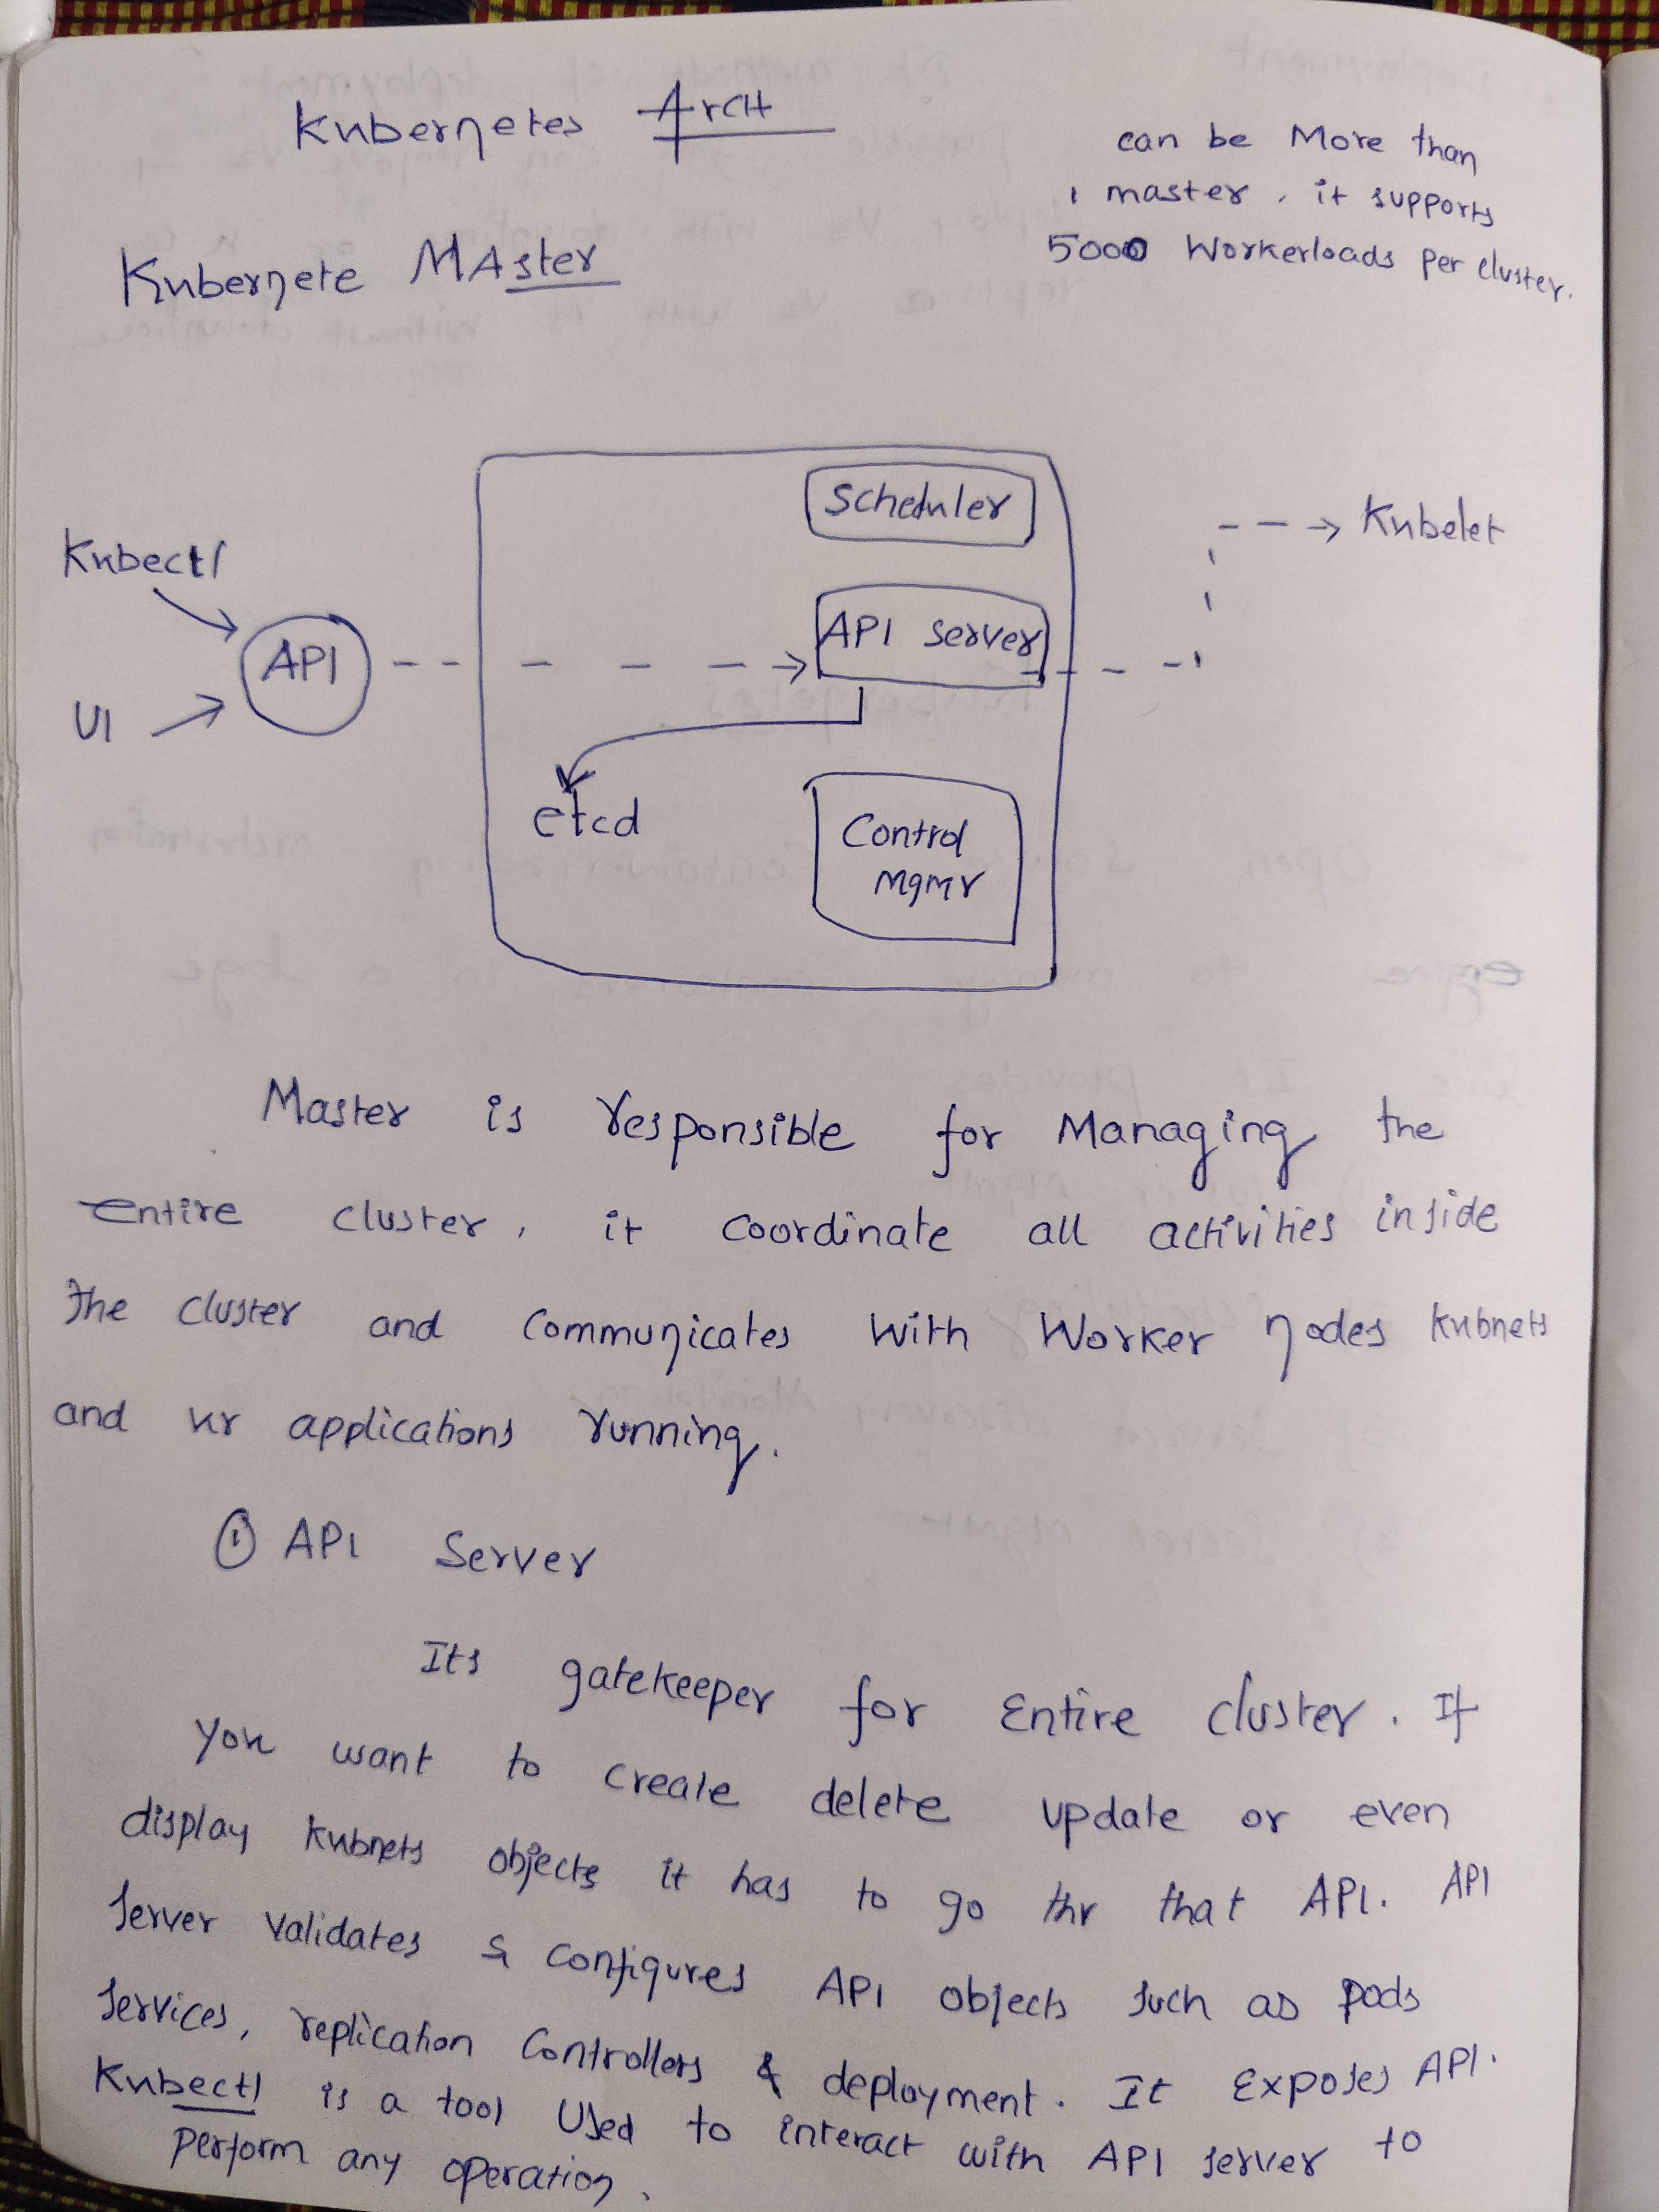 Kubernetes Arch
can be More than
1 master, it supports
5000 Workerloads per cluster.
Kubernete MAster
Scheduler
Kubelet
Kubectl
API server
API
UI
etcd
Control
Mgmr
Master is responsible for Managing the
entire cluster, it coordinate all activities inside
the cluster and communicates with Worker nodes kubnets
and ur applications running.
① API Server
Its gatekeeper for Entire cluster. If
you want to create delete update or even
display kubnets objects it has to go thr that API. API
server validates & configures API objects such as pods
services, replication controllers & deployment. It Exposes API.
Kubectl is a tool Used to interact with API server to
perform any operation.